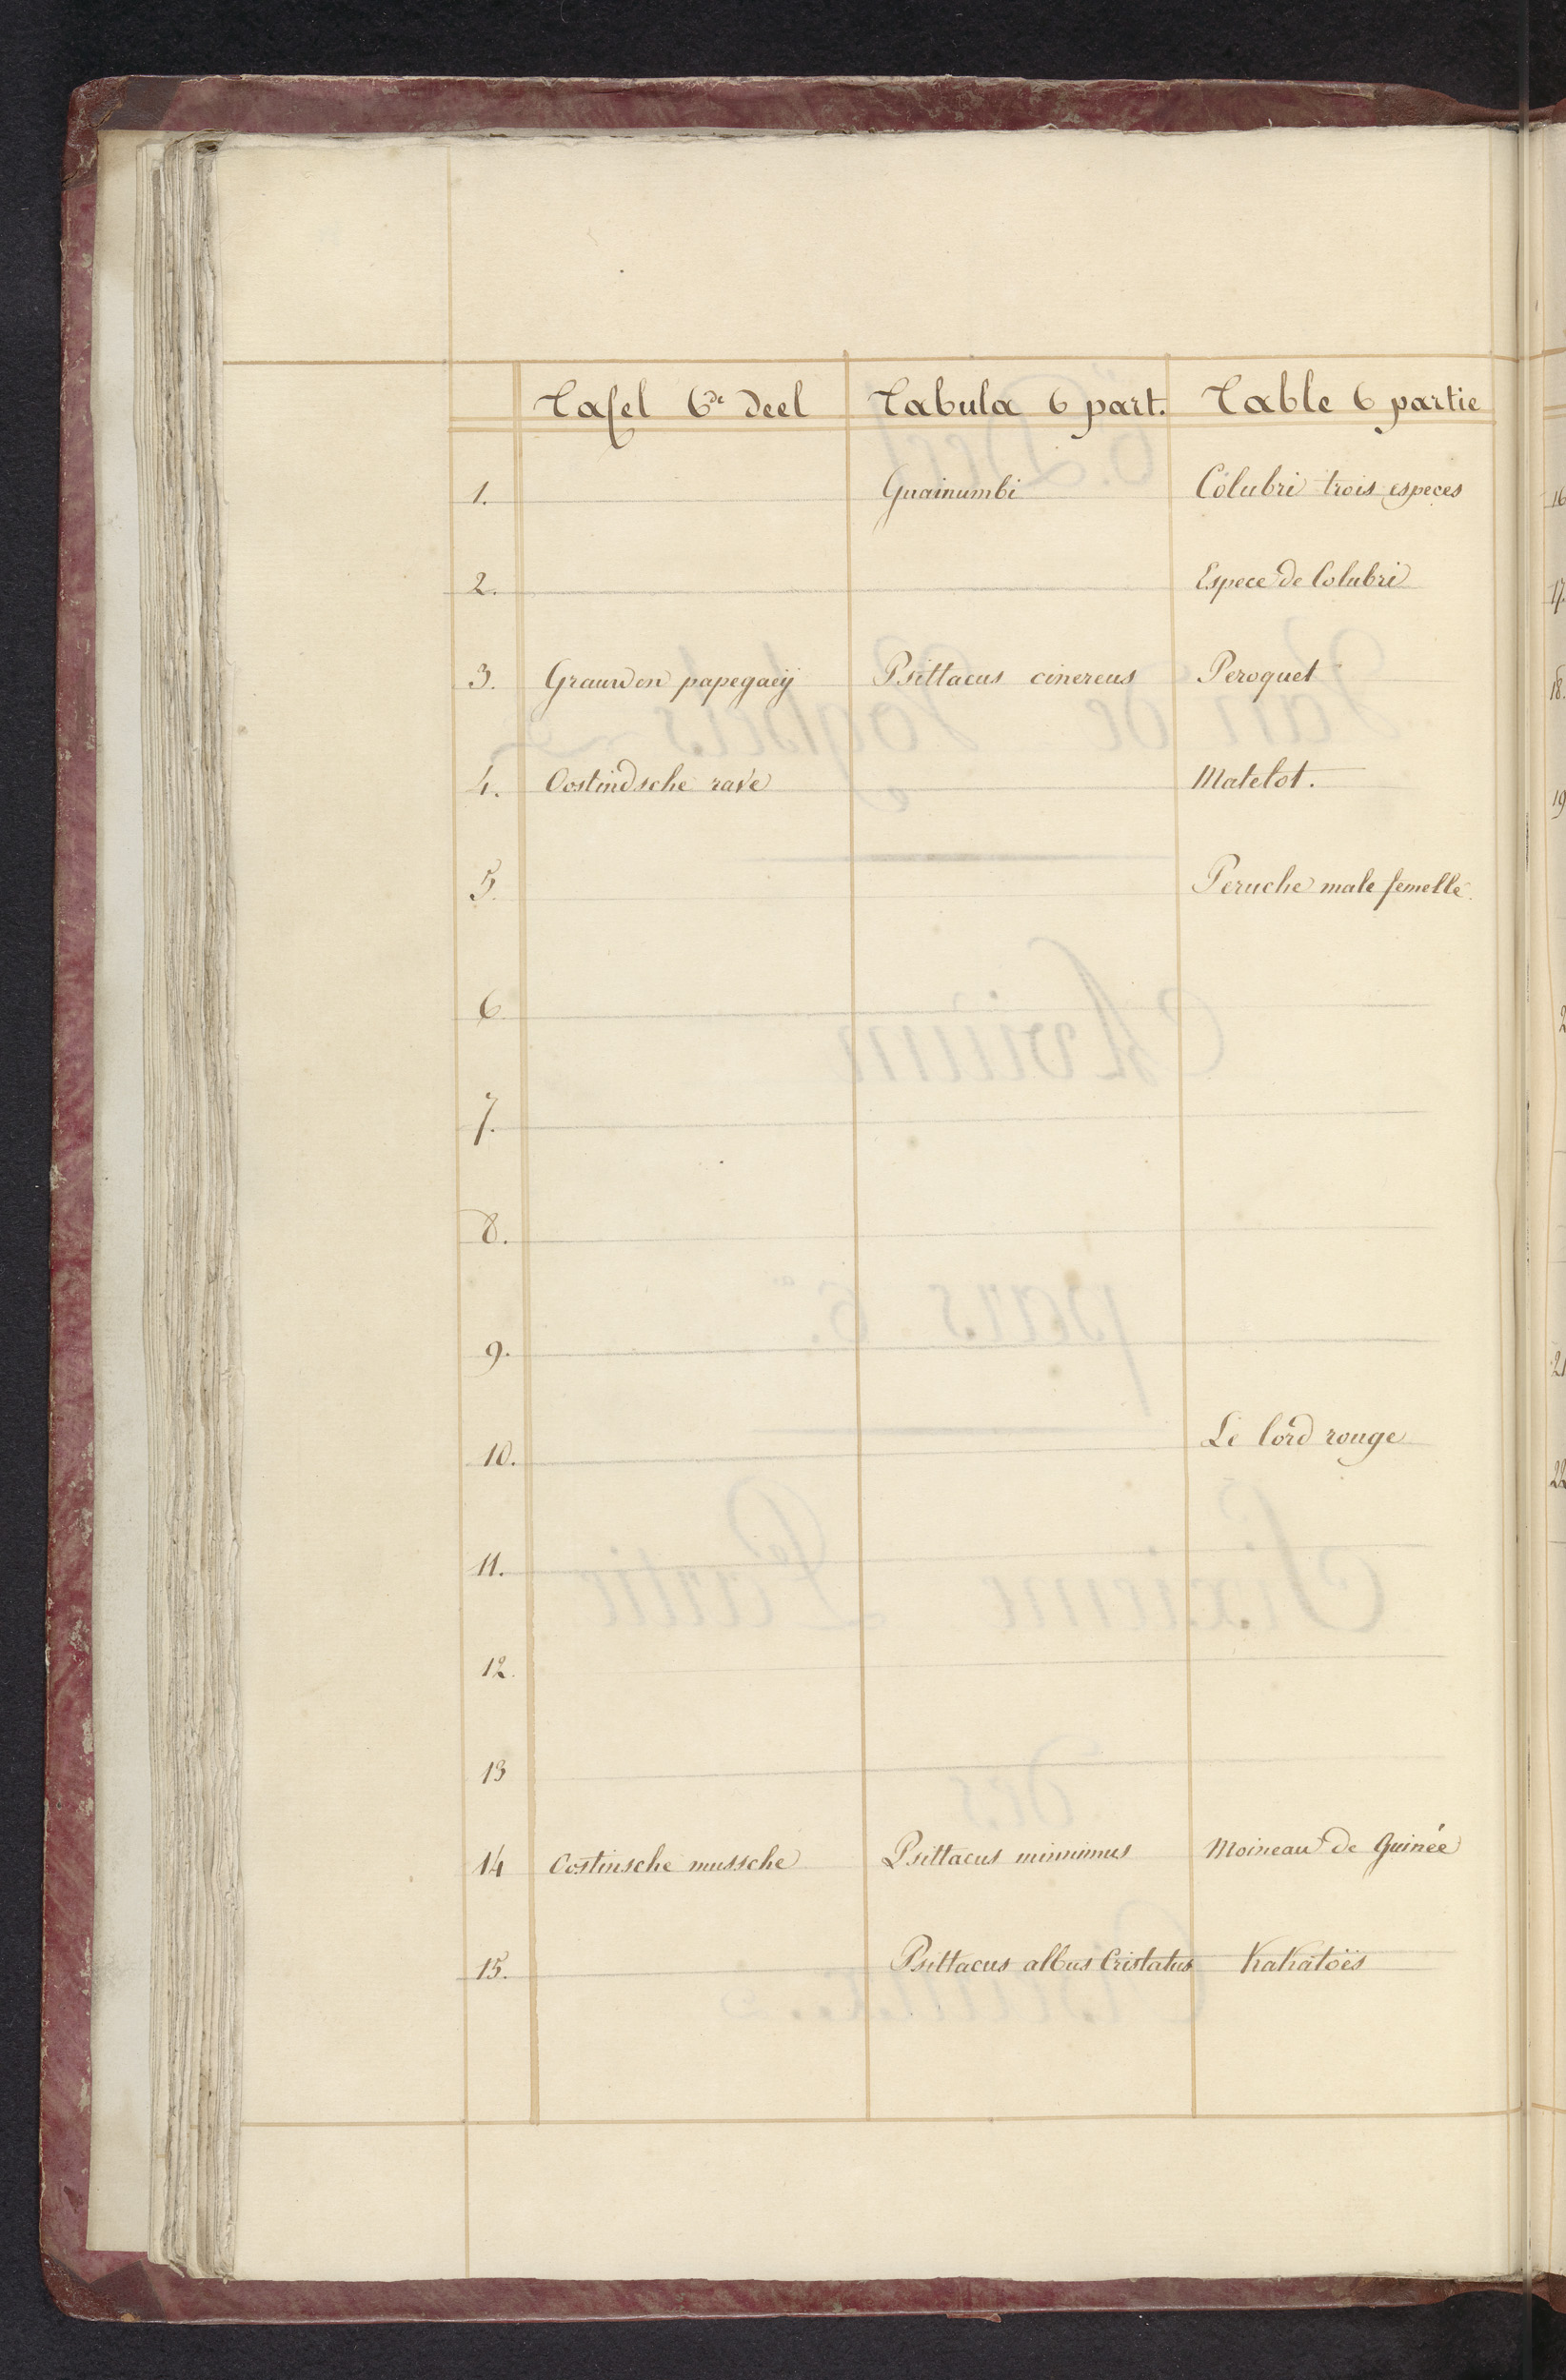 Tafel 6de Deel Tabula 6 part. Table 6 partie
1. Guainumbi Colubri trois especes
2. Espece de Colubri
3. Grauwen papegaeÿ Psittacus cinereus Peroquet
4. Oostindsche rave Matelot.
5. Peruche male femelle.
6
7.
8.
9.
10. Le lord rouge
11.
12.
13
14 Oostinsche mussche Psittacus minnimus Moineau de Guinée
15. Psittacus albus Cristatus Kakatoës
16
17.
18.
19
21
22